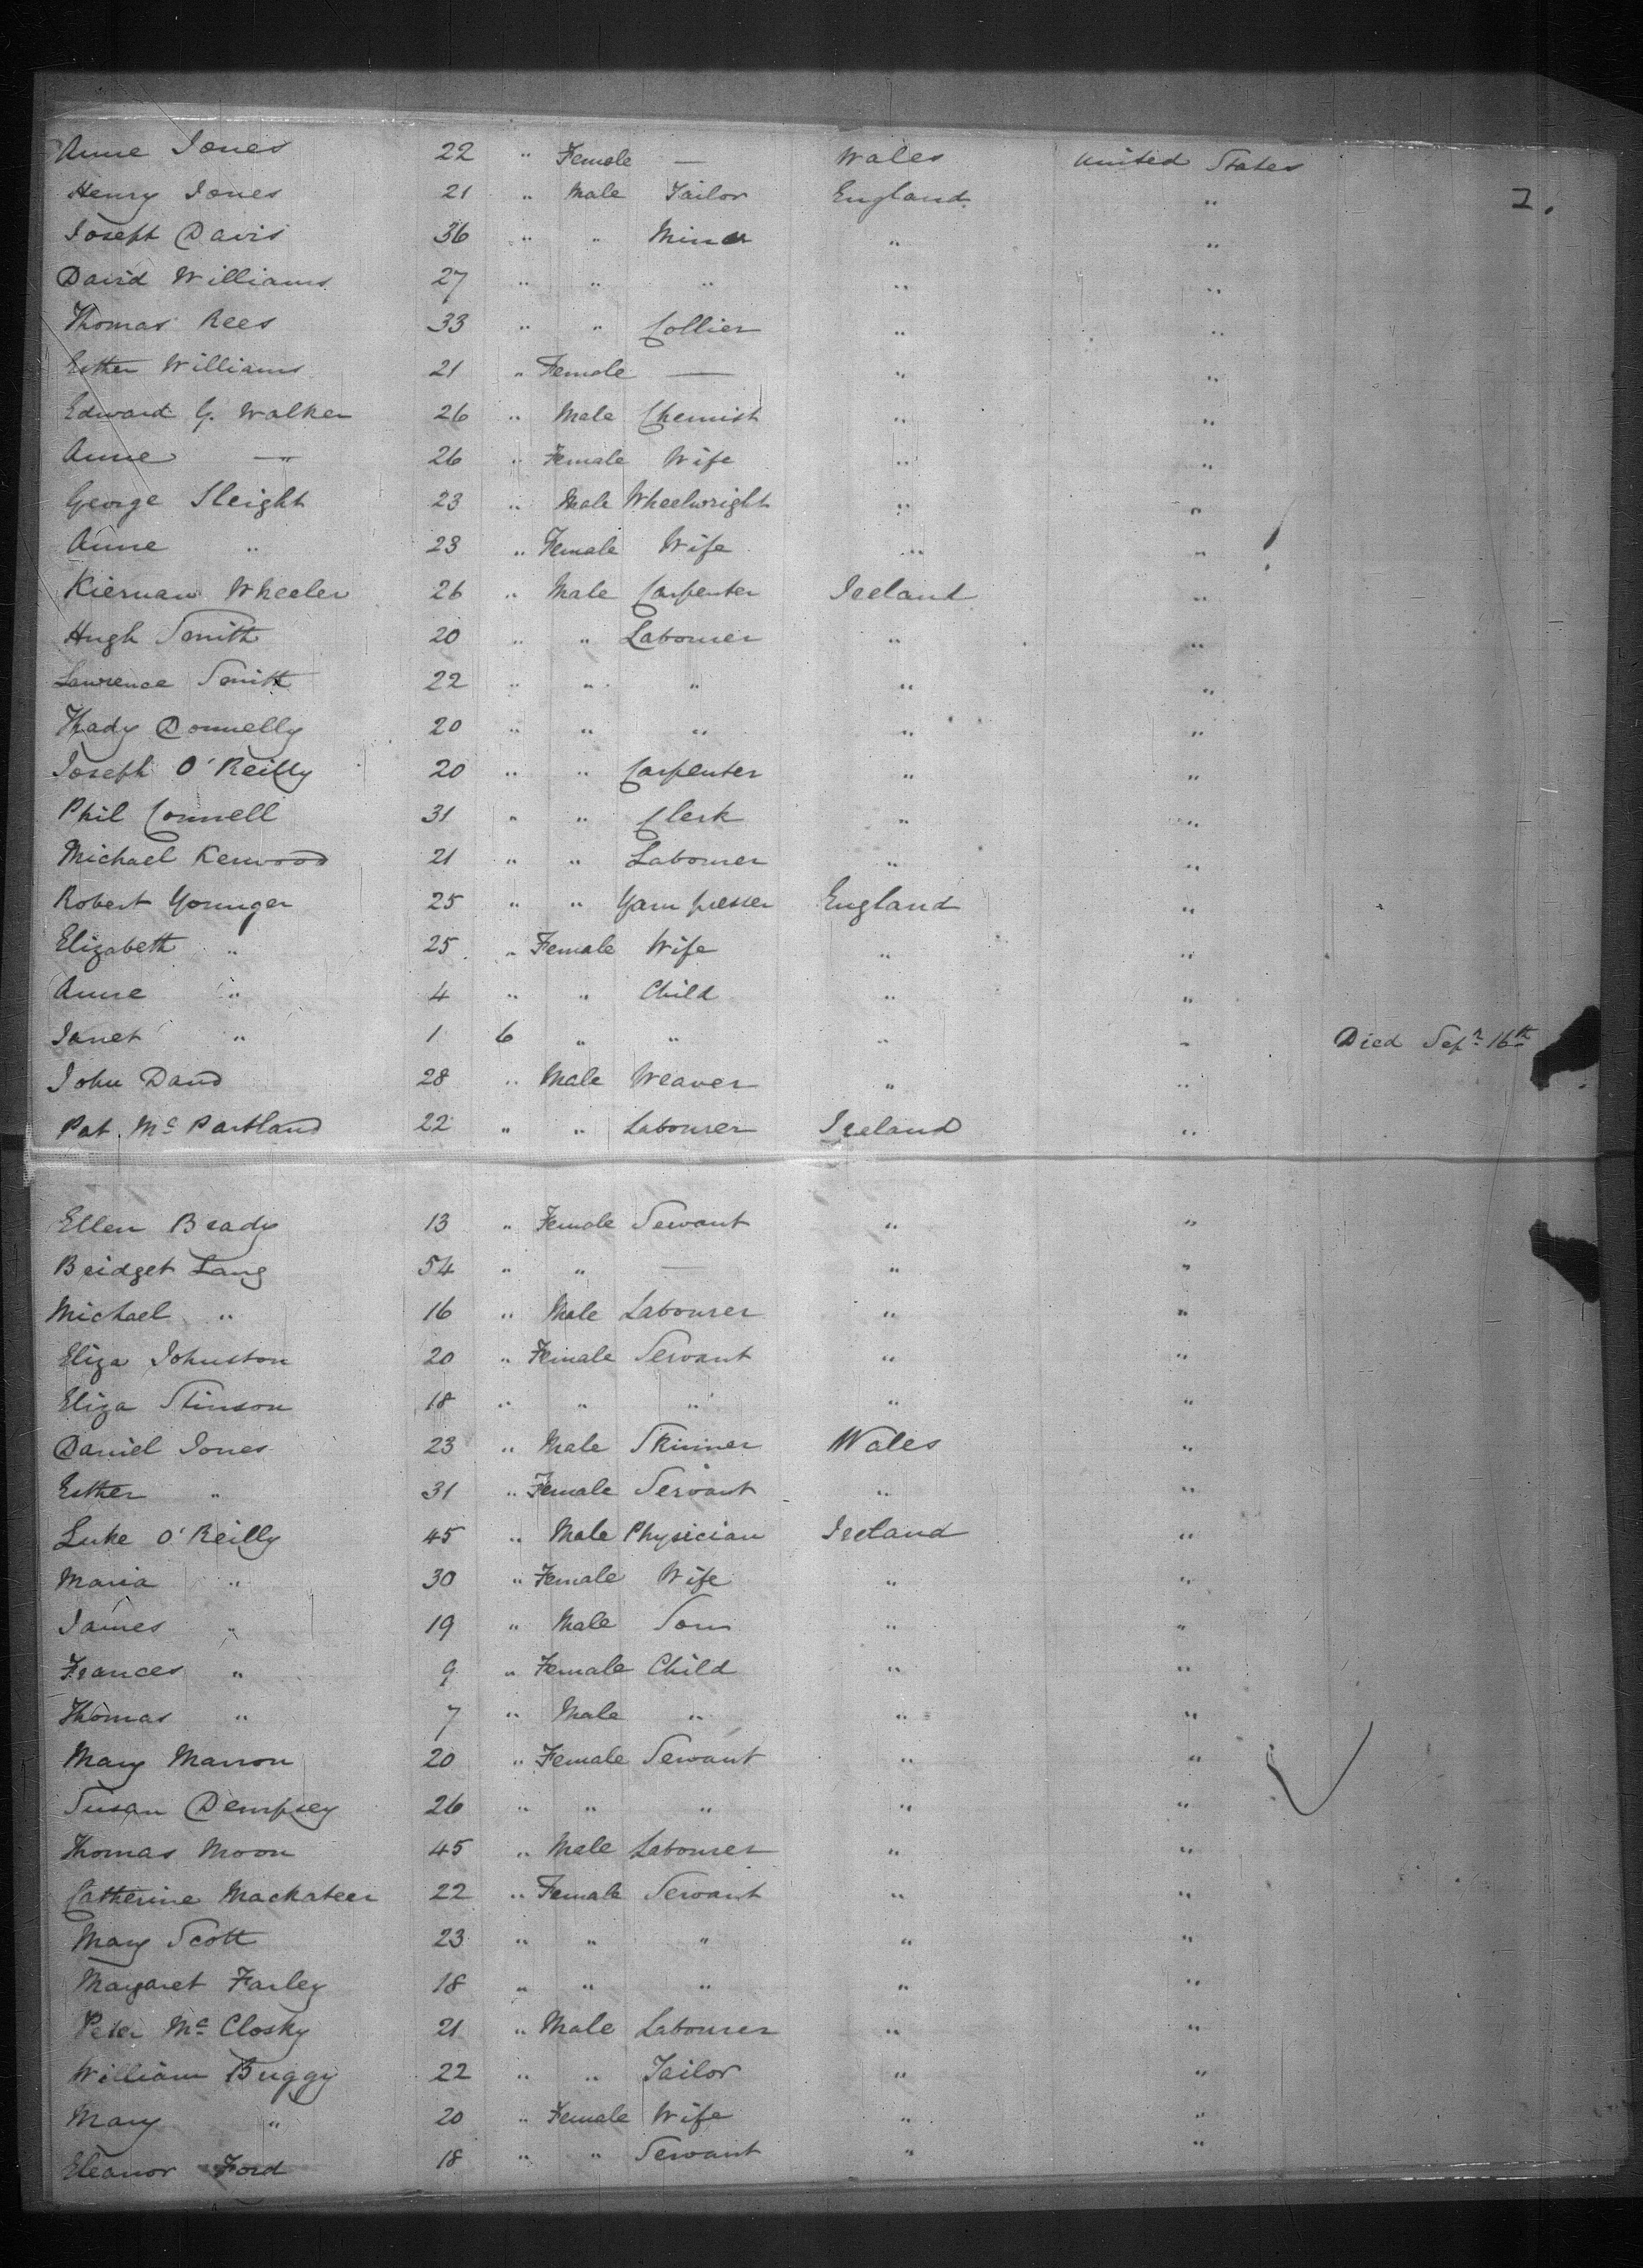 Anne Jones 22 " Female — Wales United States
Henry Jones 21 " Male Tailor England " 2.
Joseph Davis 36 " " Miner " "
David Williams 27 " " " " "
Thomas Rees 33 " " Collier " "
Esther Williams 21 " Female — " "
Edward G. Walker 26 " Male Chemist " "
Anne —"— 26 " Female Wife " "
George Sleight 23 " Male Wheelwright " "
Anne " 23 " Female Wife " "
Kiernan Wheeler 26 " Male Carpenter Ireland "
Hugh Smith 20 " " Labourer " "
Lawrence Smith 22 " " " " "
Thady Donnelly 20 " " " " "
Joseph O'Reilly 20 " " Carpenter " "
Phil Connell 31 " " Clerk " "
Michael Kenwood 21 " " Labourer " "
Robert Younger 25 " " Yarn presser England "
Elizabeth " 25 " Female Wife " "
Anne " 4 " " Child " "
Janet " 1 6 " " " " Died Sepr 16th
John Dand 28 " Male Weaver " "
Pat McPartland 22 " " Labourer Ireland "
Ellen Brady 13 " Female Servant " "
Bridget Lang 54 " " — " "
Michael " 16 " Male Labourer " "
Eliza Johnston 20 " Female Servant " "
Eliza Stinson 18 " " " " "
Daniel Jones 23 " Male Skinner Wales "
Esther " 31 " Female Servant " "
Luke O'Reilly 45 " Male Physician Ireland "
Maria " 30 " Female Wife " "
James " 19 " Male Son " "
Frances " 9 " Female Child " "
Thomas " 7 " Male " " "
Mary Marron 20 " Female Servant " "
Susan Dempsey 26 " " " " "
Thomas Moon 45 " Male Labourer " "
Catherine Mackateer 22 " Female Servant " "
Mary Scott 23 " " " " "
Margaret Farley 18 " " " " "
Peter McClosky 21 " Male Labourer " "
William Buggy 22 " " Tailor " "
Mary " 20 " Female Wife " "
Eleanor Ford 18 " " Servant " "